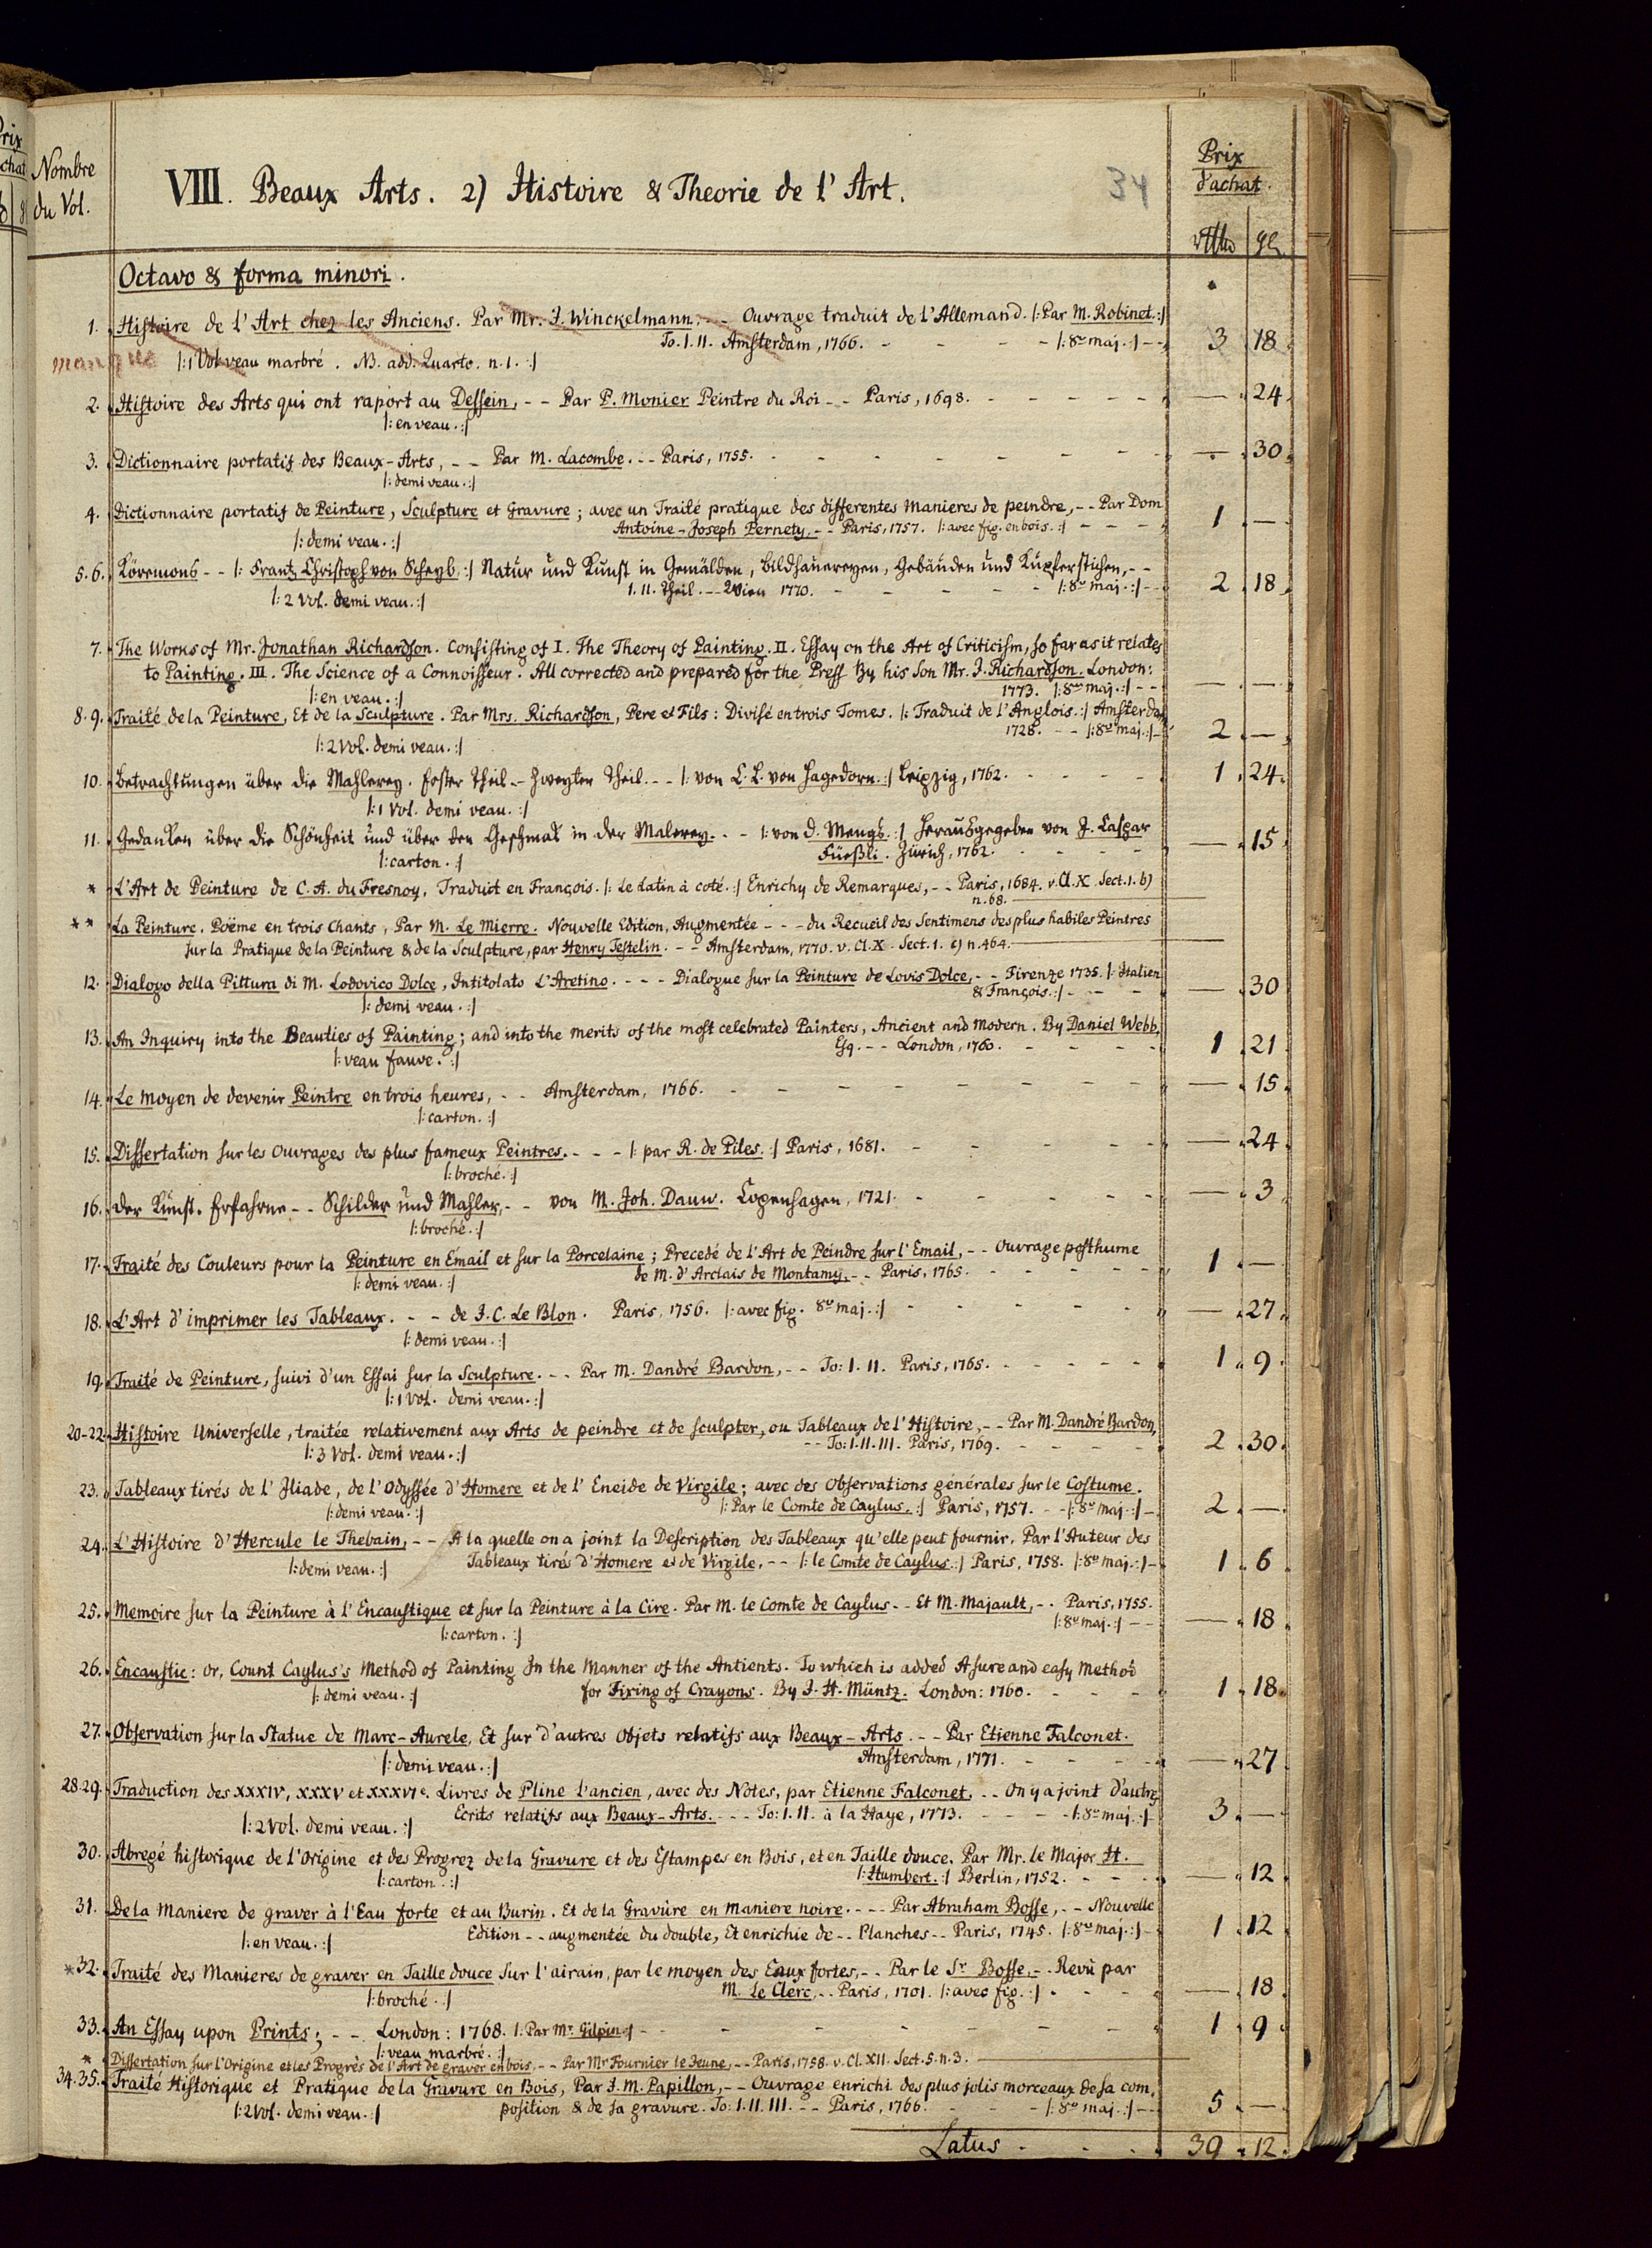 Prix
d'achat.
Nombre
du Vol.
VIII. Beaux Arts. 2) Histoire & Theorie de l'Art.
34
Octavo & forma minori.
1. Histoire de l'Art chez les Anciens. Par Mr. J. Winckelmann. - - Ouvrage traduit de l'Allemand. |: Par M. Robinet. :|
To. I. II. Amsterdam, 1766. - - - - |: 8vo maj. :| - - 3 18
manque |: 1 Vol veau marbré. NB. add. Quarto. n. 1. :|
2. Histoire des Arts qui ont raport au Dessein, - - Par P. Monier Peintre du Roi - - Paris, 1698. - - - - - - — 24
|: en veau. :|
3. Dictionnaire portatif des Beaux-Arts, - - Par M. Lacombe. - - Paris, 1755. - - - - - - - — 30
|: demi veau. :|
4. Dictionnaire portatif de Peinture, Sculpture et Gravure; avec un Traité pratique des differentes Manieres de peindre, - - Par Dom
Antoine-Joseph Pernety. - - Paris, 1757. |: avec fig. en bois. :| - - - - 1 —
|: demi veau. :|
5. 6. Köremons - - |: Frantz Christoph von Scheyb. :| Natur und Kunst in Gemälden, Bildhauereyen, Gebäuden und Kupferstichen, - -
I. II. Theil. - - Wien 1770. - - - - - |: 8vo maj. :| - - 2 18
|: 2 Vol. demi veau. :|
7. The Works of Mr. Jonathan Richardson. Consisting of I. The Theory of Painting. II. Essay on the Art of Criticism, so far as it relates
to Painting. III. The Science of a Connoisseur. All corrected and prepared for the Press By his Son Mr. J. Richardson. London:
1773. |: 8vo maj. :| - - — —
|: en veau. :|
8. 9. Traité de la Peinture, Et de la Sculpture. Par Mrs. Richardson, Pere et Fils: Divisé en trois Tomes. |: Traduit de l'Anglois. :| Amsterdam
1728. - - |: 8vo maj. :| - 2 —
|: 2 Vol. demi veau. :|
10. Betrachtungen über die Mahlerey. Erster Theil - - Zweyter Theil. - - |: von C. L. von Hagedorn. :| Leipzig, 1762. - - - - - 1 24
|: 1 Vol. demi veau. :|
11. Gedanken über die Schönheit und über den Geschmak in der Malerey. - - |: von D. Mengs. :| Herausgegeben von J. Caspar
Füeßli. Zürich, 1762. - - - - — 15
|: carton. :|
* L'Art de Peinture de C. A. du Fresnoy, Traduit en François. |: Le Latin à coté. :| Enrichy de Remarques, - - Paris, 1684. v. Cl. X. Sect. 1. b)
n. 68.
** La Peinture. Poëme en trois Chants, Par M. Le Mierre. Nouvelle Edition, Augmentée - - - du Recueil des Sentimens des plus habiles Peintres
sur la Pratique de la Peinture & de la Sculpture, par Henry Testelin. - - Amsterdam, 1770. v. Cl. X. Sect. 1. c) n. 464.
12. Dialogo della Pittura di M. Lodovico Dolce, Intitolato L'Aretino. - - - - Dialogue sur la Peinture de Lovis Dolce, - - Firenze 1735. |: Italien
& François. :| - - - - — 30
|: demi veau. :|
13. An Inquiry into the Beauties of Painting; and into the merits of the most celebrated Painters, Ancient and Modern. By Daniel Webb,
Esq. - - London, 1760. - - - - 1 21
|: veau fauve. :|
14. Le moyen de devenir Peintre en trois heures, - - Amsterdam, 1766. - - - - - - - - — 15
|: carton. :|
15. Dissertation sur les Ouvrages des plus fameux Peintres. - - - |: par R. de Piles. :| Paris, 1681. - - - - - — 24
|: broché. :|
16. Der Kunst-Erfahrne - - Schilder und Mahler, - - von M. Joh. Dauw. Copenhagen, 1721. - - - - - — 3
|: broché. :|
17. Traité des Couleurs pour la Peinture en Email et sur la Porcelaine; Precedé de l'Art de Peindre sur l'Email, - - Ouvrage posthume
de M. d'Arclais de Montamy. - - Paris, 1765. - - - - - - 1 —
|: demi veau. :|
18. L'Art d'imprimer les Tableaux. - - de J. C. Le Blon. Paris, 1756. |: avec fig. 8vo maj. :| - - - - - — 27
|: demi veau. :|
19. Traité de Peinture, suivi d'un Essai sur la Sculpture. - - Par M. Dandré Bardon, - - To: I. II. Paris, 1765. - - - - - 1 9
|: 1 Vol. demi veau. :|
20-22. Histoire Universelle, traitée relativement aux Arts de peindre et de sculpter, ou Tableaux de l'Histoire, - - Par M. Dandré Bardon,
- - To: I. II. III. Paris, 1769. - - - - 2 30
|: 3 Vol. demi veau. :|
23. Tableaux tirés de l'Iliade, de l'Odyssée d'Homere et de l'Eneide de Virgile; avec des Observations générales sur le Costume.
|: demi veau. :| |: Par le Comte de Caylus. :| Paris, 1757. - - |: 8vo maj. :| - 2 —
24. L'Histoire d'Hercule le Thebain, - - A la quelle on a joint la Description des Tableaux qu'elle peut fournir. Par l'Auteur des
|: demi veau. :| Tableaux tirés d'Homere et de Virgile, - - |: le Comte de Caylus. :| Paris, 1758. |: 8vo maj. :| - 1 6
25. Memoire sur la Peinture à l'Encaustique et sur la Peinture à la Cire. Par M. le Comte de Caylus - - Et M. Majault, - - Paris, 1755.
|: 8vo maj. :| - - — 18
|: carton. :|
26. Encaustic: or, Count Caylus's Method of Painting In the Manner of the Antients. To which is added A sure and easy Method
|: demi veau. :| for Fixing of Crayons. By J. H. Müntz. London: 1760. - - - - 1 18
27. Observation sur la Statue de Marc-Aurele, Et sur d'autres Objets relatifs aux Beaux-Arts. - - Par Etienne Falconet.
|: demi veau. :| Amsterdam, 1771. - - - - — 27
28. 29. Traduction des XXXIV, XXXV et XXXVIe. Livres de Pline l'ancien, avec des Notes, par Etienne Falconet. - - On y a joint d'autres
Ecrits relatifs aux Beaux-Arts. - - - To: I. II. à la Haye, 1773. - - - - |: 8vo maj. :| 3 —
|: 2 Vol. demi veau. :|
30. Abregé historique de l'Origine et des Progrez de la Gravure et des Estampes en Bois, et en Taille douce. Par Mr. le Major H.
|: carton. :| |: Humbert. :| Berlin, 1752. - - - — 12
31. De la Maniere de graver à l'Eau forte et au Burin. Et de la Gravûre en maniere noire. - - - - Par Abraham Bosse, - - Nouvelle
|: en veau. :| Edition - - augmentée du double, Et enrichie de - - Planches - - Paris, 1745. |: 8vo maj. :| - 1 12
*32. Traité des Manieres de graver en Taille douce Sur l'airain, par le moyen des Eaux fortes, - - Par le Sr. Bosse. - - Revû par
|: broché. :| M. Le Clerc, - - Paris, 1701. |: avec fig. :| - - - — 18
33. An Essay upon Prints; - - London: 1768. |: Par Mr. Gilpin :| - - - - - - - 1 9
|: veau marbré. :|
* Dissertation sur l'Origine et les Progrès de l'Art de graver en bois, - - Par Mr Fournier le Jeune, - - Paris, 1758. v. Cl. XII. Sect. 5. n. 3.
34. 35. Traité Historique et Pratique de la Gravure en Bois, Par J. M. Papillon, - - Ouvrage enrichi des plus jolis morceaux de sa com,
|: 2 Vol. demi veau. :| position & de sa gravure. To: I. II. III. - - Paris, 1766. - - - |: 8vo maj. :| - - 5 —
Latus - - - 39 12